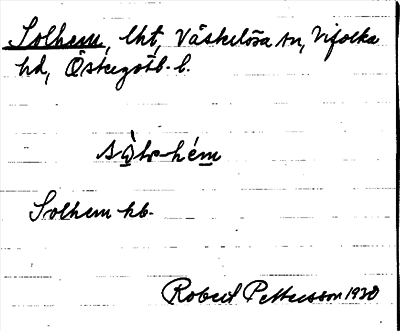 Solhem, lht, Väskelösa sn, Vifolka
hd, Östergötl. l.
sò̲l-hém̲
Solhem hb.
Robert Pettersson 1930